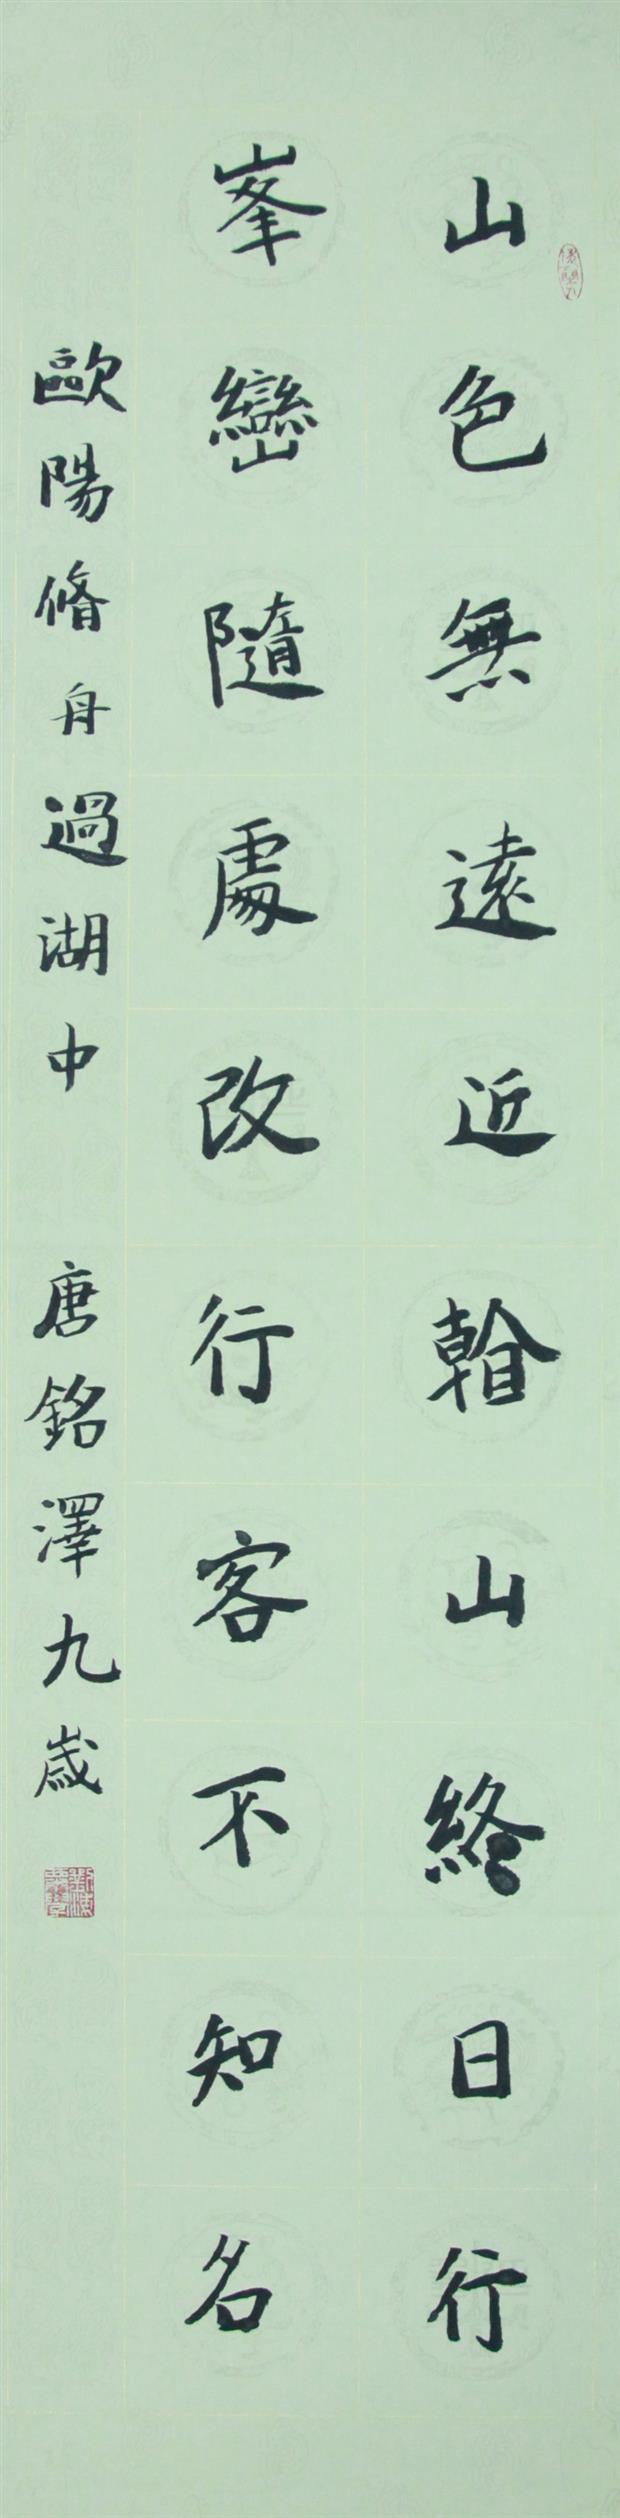 山色無遠近𠦝山終日行
峯巒隨處改行客不知名
歐陽脩舟過湖中 唐銘澤九歲